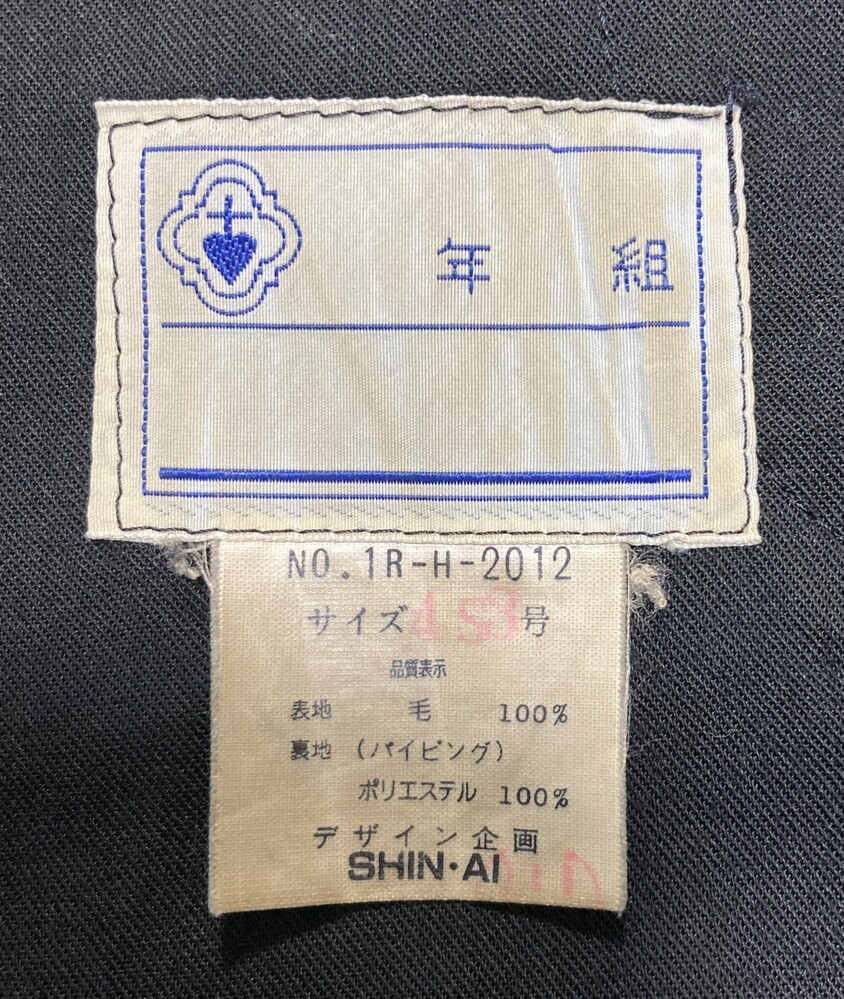 年 組
NO.1R-H-2012
サイズ 453号
品質表示
表地 毛 100%
裏地 (パイピング)
ポリエステル 100%
デザイン企画
SHIN・AI